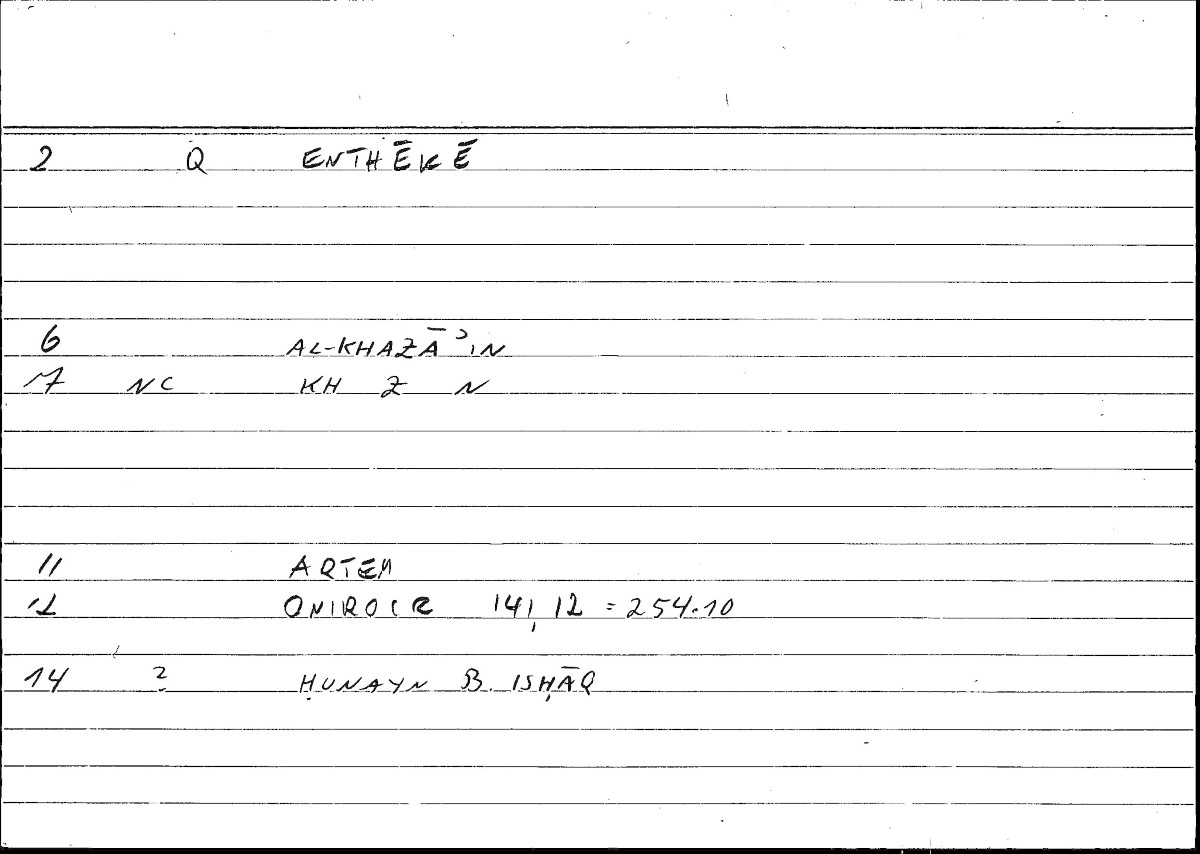 2 Q ENTHĒKĒ
6 AL-KHAZĀʾIN
7 NC KH Z N
11 ARTEM
12 ONIROCR 141,12 = 254.10
14 2 ḤUNAYN B. ISḤĀQ